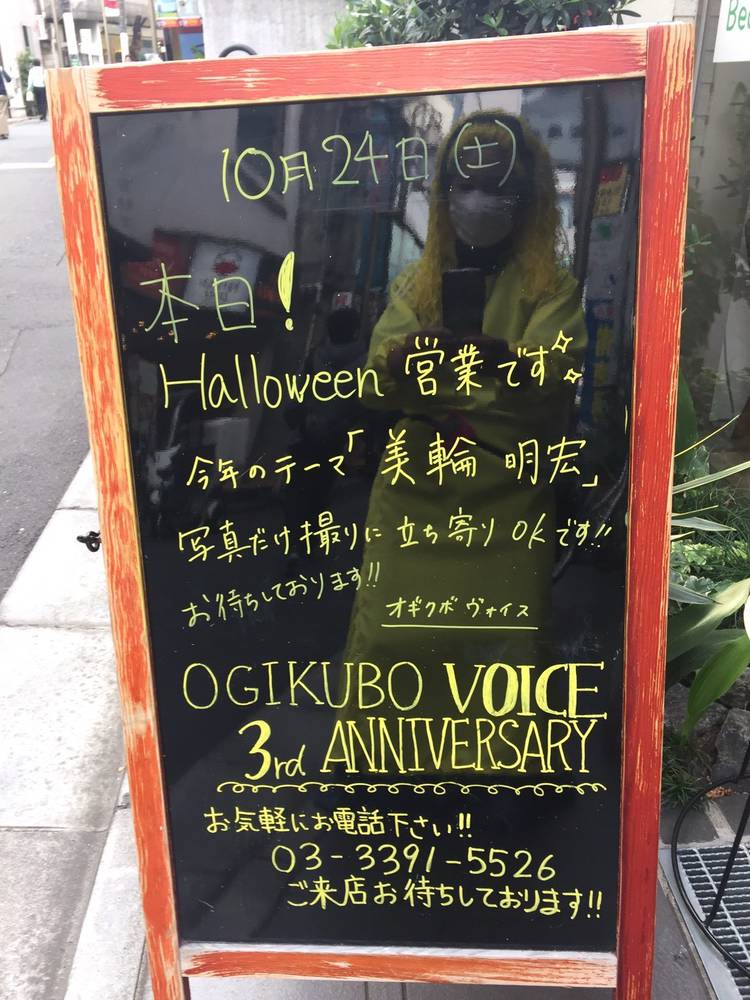 10月24日(土)
本日!
Halloween 営業です
今年のテーマ「美輪 明宏」
写真だけ撮りに立ち寄り OKです!!
お待ちしております!!
オギクボ ヴォイス
OGIKUBO VOICE
3rd ANNIVERSARY
お気軽にお電話下さい!!
03-3391-5526
ご来店お待ちしております!!